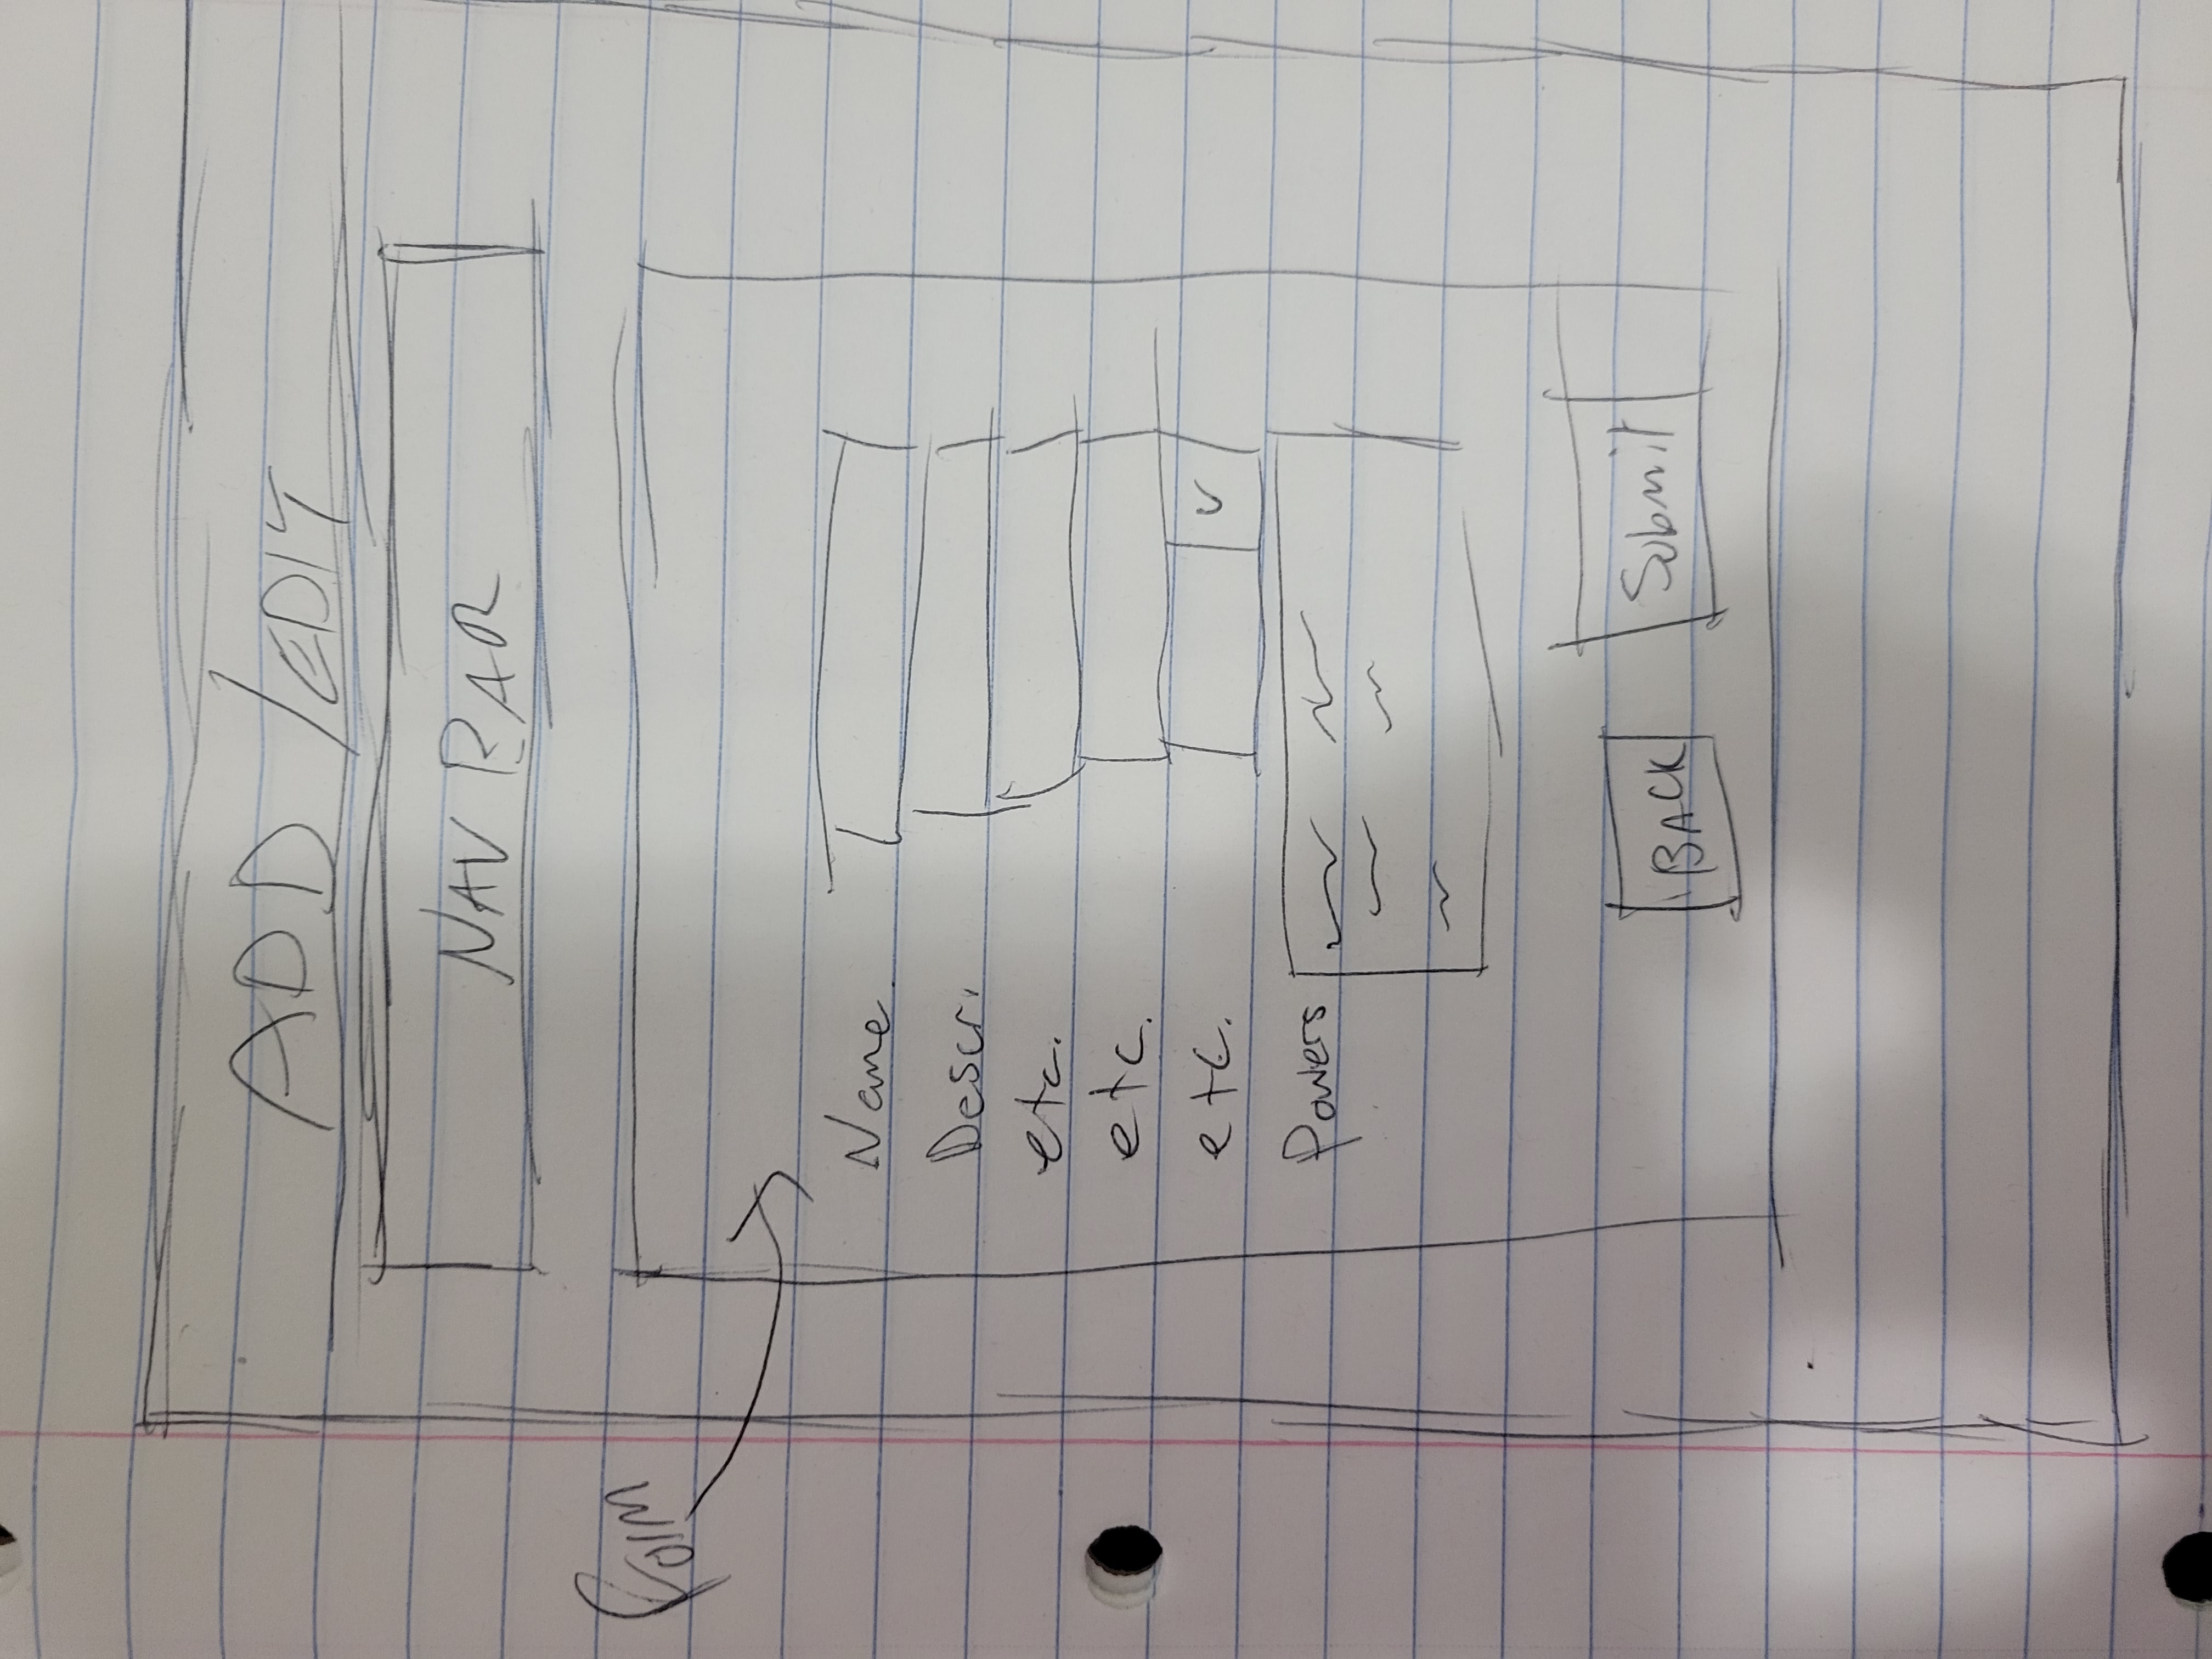 ADD/EDIT
NAV BAR
Form
Name
Descr.
etc.
etc.
etc.
Powers
BACK
Submit